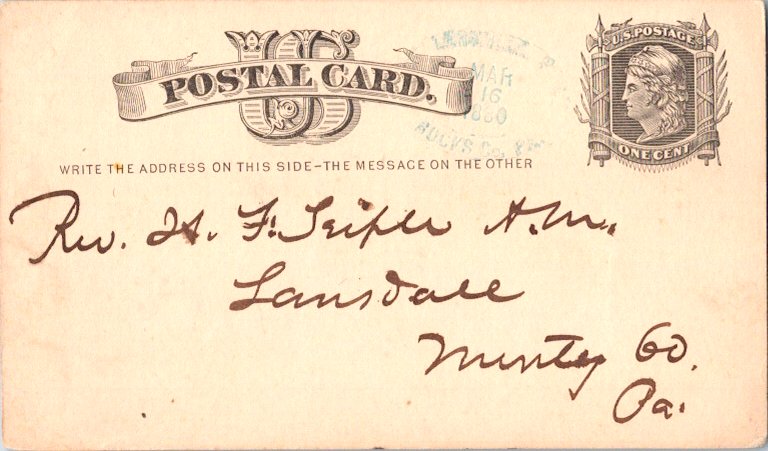 US
POSTAL CARD.
U.S. POSTAGE
ONE CENT
MAR
16
1880
BUCKS Co.
WRITE THE ADDRESS ON THIS SIDE-THE MESSAGE ON THE OTHER
Rev. H. F. Seiple A.M.
Lansdale
Montg Co.
Pa.